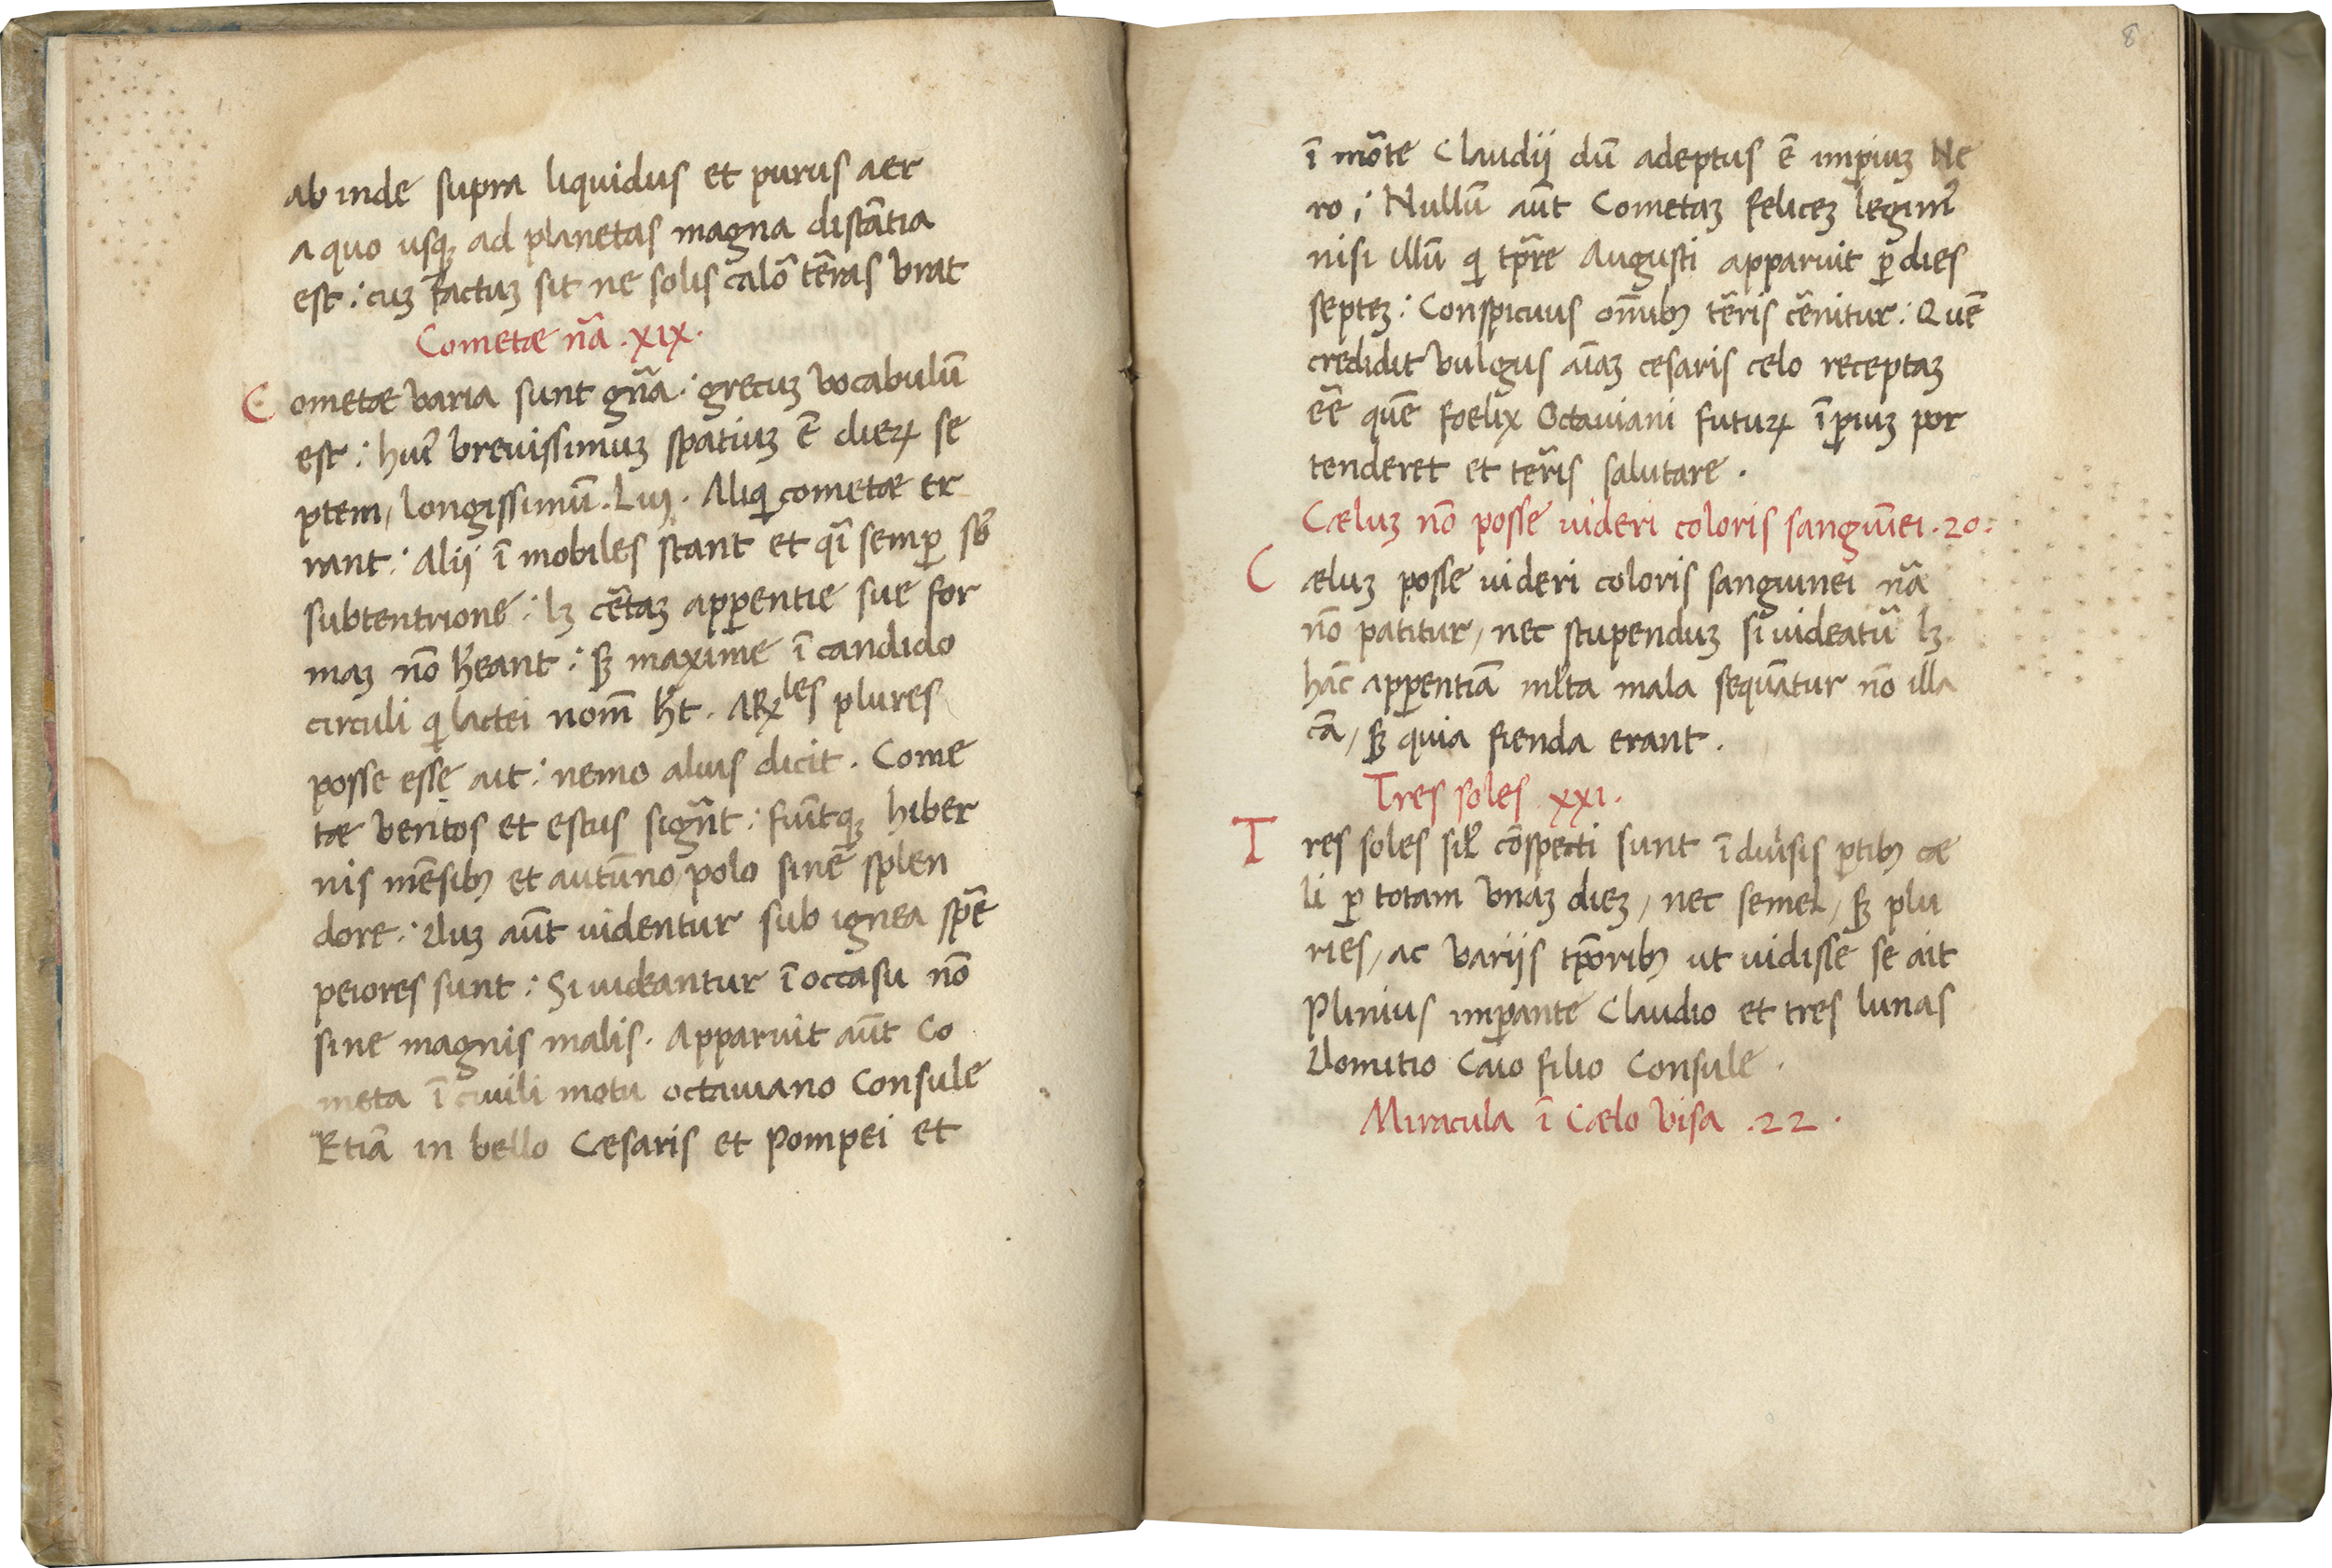 ab inde supra liquidus et purus aer
a quo usqꝫ ad planetas magna distãtia
est : cuꝫ factuꝫ sit ne solis calõ tẽras vrat
Cometæ nã . xıx .
C ometæ varia sunt gña : grecuꝫ vocabulũ
est : huı̃ breuissimuꝫ spatiuꝫ ẽ dieꝝ se
ptem, longissimũ . Lııj . Aliqi cometæ er
rant : Alij ı̃ mobiles stant et qı̃ semꝑ sb̃
subtentrione : lꝫ cẽtaꝫ apꝑentie sue for
maꝫ nõ hẽant : sꝫ maxime ı̃ candido
circuli qi lactei nom̃ ht̃ . ARꝝles plures
posse esse ait : nemo aluis dicit . Come
tæ ventos et estus sigñt : fiũtqꝫ hiber
nis mẽsibꝫ et autũno polo sinẽ splen
dore : Dum aũt uidentur sub ignea spẽ
peiores sunt : Si uideantur ı̃ occasu nõ
sine magnis malis . Apparuit aũt Co
meta ı̃ ciuili motu octauiano Consule
Etiã in bello Cæsaris et Pompei et
8
ı̃ mõte Claudij dũ adeptus ẽ imꝑiuꝫ Ne
ro ; Nullũ aũt Cometaꝫ feliceꝫ legim̃
nisi illũ qi tp̃re Augusti apparuit ꝑ dies
septeꝫ : Conspicuus om̃ibꝫ tẽris cẽnitur : Quẽ
credidit vulgus aı̃aꝫ cesaris celo receptaꝫ
eẽ quẽ foelix Octauiani futuꝝ ı̃ꝑiuꝫ por
tenderet et ter̃is salutare .
Cæluꝫ nõ posse uideri coloris sanguı̃ei . 20 :
C æluꝫ posse uideri coloris sanguinei nã
nõ patitur, nec stupenduꝫ si uideatũ lꝫ
hãc apꝑentiã ml̃ta mala sequãtur nõ illa
cã, sꝫ quia fienda erant .
Tres soles xxı .
T res soles sil̃ cõspecti sunt ı̃ diũsis ꝑtibꝫ cæ
li ꝑ totam vnaꝫ dieꝫ, nec semel, sꝫ plu
ries, ac varijs tp̃oribꝫ ut uidisse se ait
Plinius imꝑante Claudio et tres lunas
Domitio Caio filio Consule .
Miracula ı̃ Cælo visa . 22 .